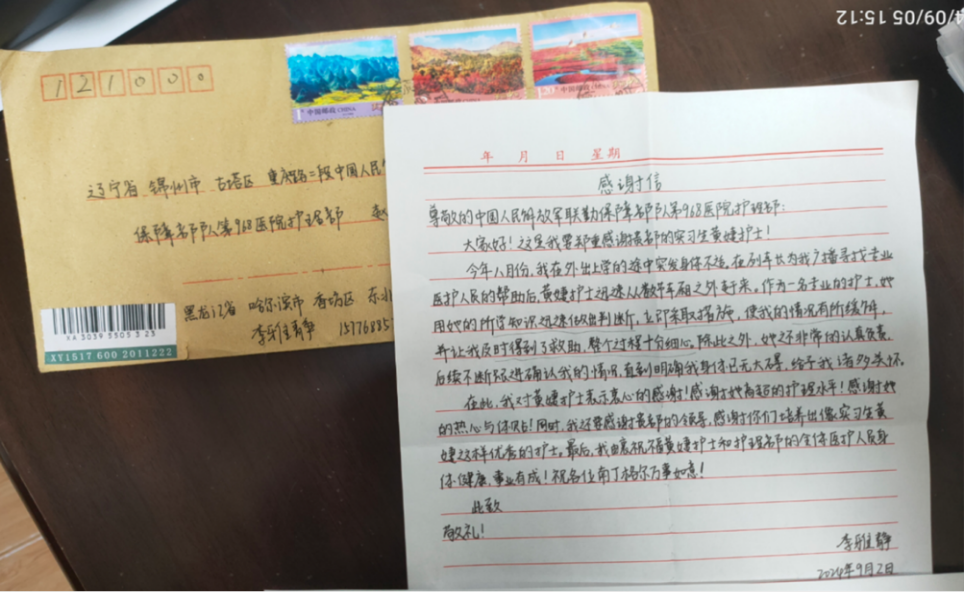 4/09/05 15:12
121000
中国邮政 CHINA
辽宁省 锦州市 古塔区 重庆路二段中国人民
保障部队第968医院护理部 赵
黑龙江省 哈尔滨市 香坊区 东北
李雅静 15776835
XA 3039 5505 3 23
XY1517 600 2011222
年 月 日 星期
感谢信
尊敬的中国人民解放军联勤保障部队第968医院护理部:
大家好!这里我要郑重感谢贵部的实习生黄婕护士!
今年八月份,我在外出上学的途中突发身体不适,在列车长为我广播寻找专业
医护人员的帮助后,黄婕护士迅速从数节车厢之外赶来,作为一名专业的护士,她
用她的所学知识迅速做出判断,立即采取措施,使我的情况有所缓解,
并让我及时得到了救助,整个过程十分细心。除此之外,她还非常的认真负责,
后续不断跟进确认我的情况,直到明确我身体已无大碍,给予我诸多关怀。
在此,我对黄婕护士表示衷心的感谢!感谢她高超的护理水平!感谢她
的热心与体贴!同时,我还要感谢贵部的领导,感谢你们培养出像实习生黄
婕这样优秀的护士。最后,我由衷祝福黄婕护士和护理部的全体医护人员身
体健康,事业有成!祝各位南丁格尔万事如意!
此致
敬礼!
李雅静
2024年9月2日